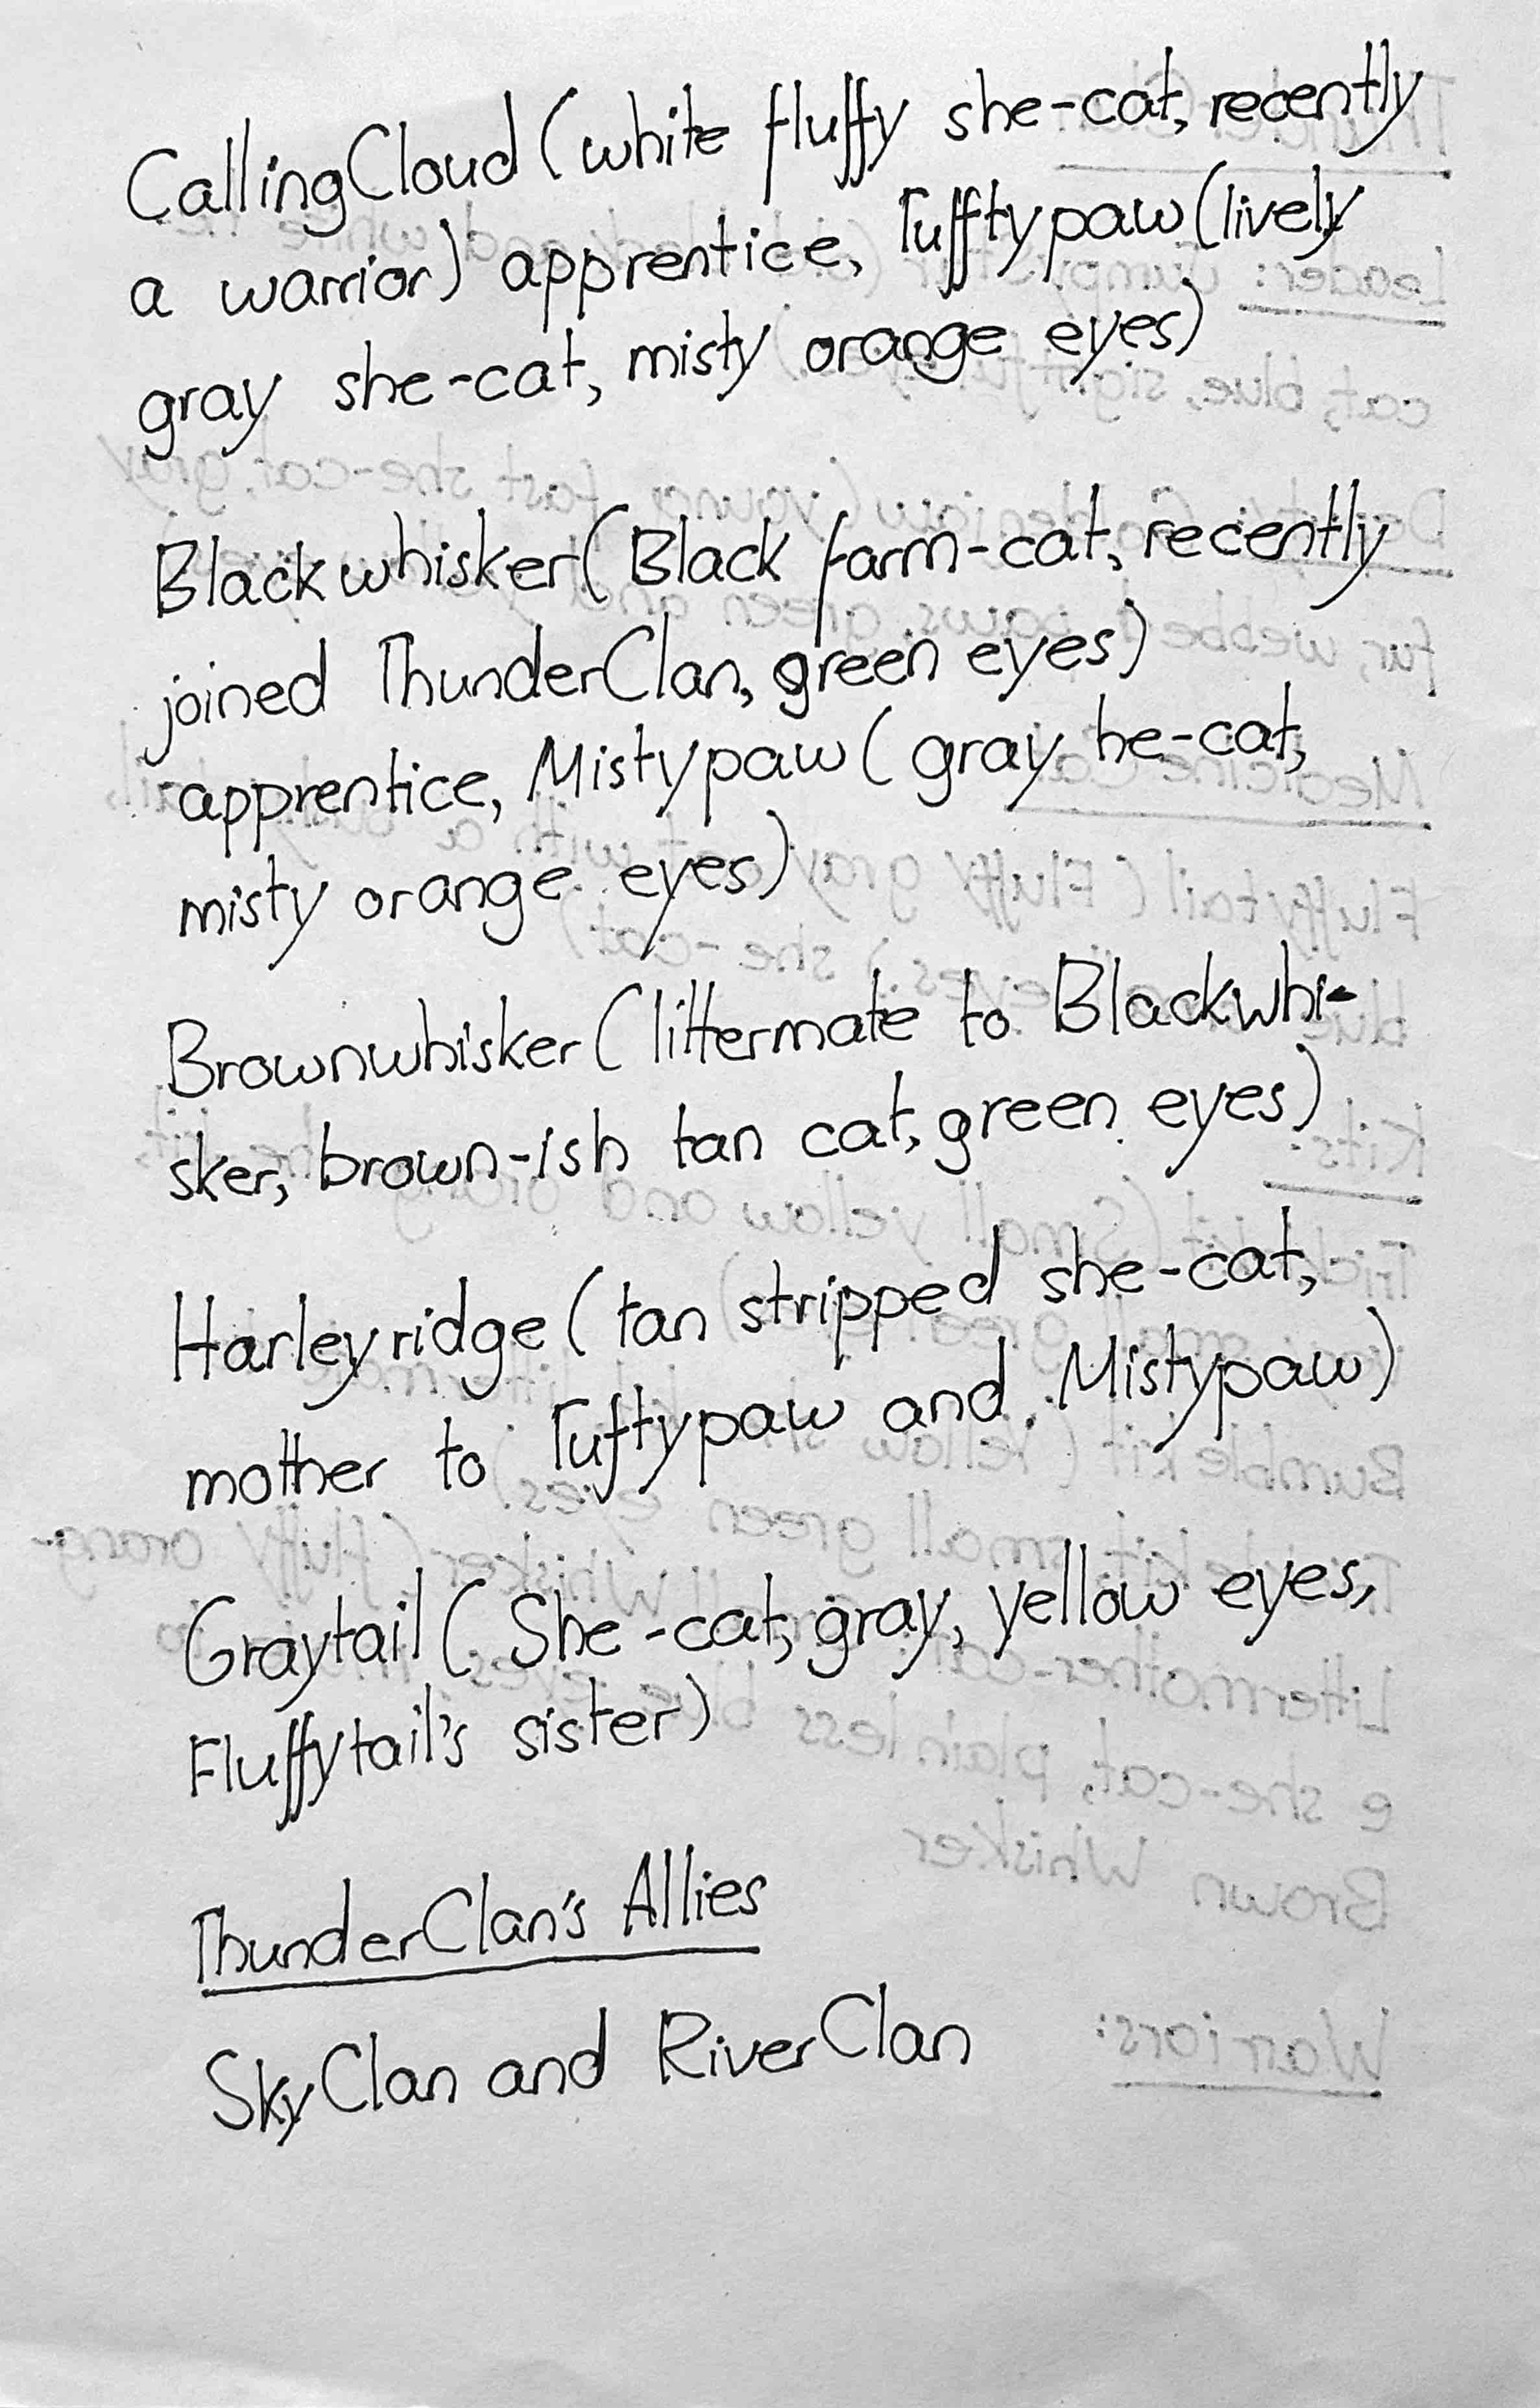 CallingCloud (white fluffy she-cat, recently
a warrior) apprentice, Tufftypaw (lively
gray she-cat, misty orange eyes)
Blackwhisker (Black farm-cat, recently
joined ThunderClan, green eyes)
apprentice, Mistypaw (gray he-cat,
misty orange eyes)
Brownwhisker (littermate to Blackwhi-
sker, brown-ish tan cat, green eyes)
Harleyridge (tan stripped she-cat,
mother to Tuftypaw and Mistypaw)
Graytail (She-cat, gray, yellow eyes,
Fluffytail's sister)
ThunderClan's Allies
SkyClan and RiverClan